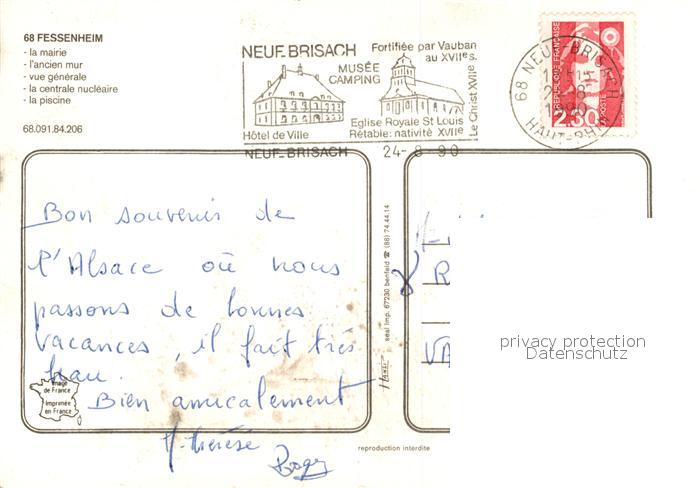 68 FESSENHEIM
- la mairie
- l'ancien mur
- vue générale
- la centrale nucléaire
- la piscine
68.091.84.206
NEUF-BRISACH
MUSÉE
CAMPING
Hôtel de Ville
Fortifiée par Vauban
au XVIIe s.
Eglise Royale St Louis
Rétable: nativité XVIIe
Le Christ XVIIe
NEUF-BRISACH 24-8-90
68 NEUF-BRISACH
1990
HAUT-RHIN
REPUBLIQUE FRANÇAISE
2,30
Bon souvenir de
l'Alsace où nous
passons de bonnes
vacances, il fait très
beau.
Bien amicalement
M-Thérèse
Roger
Image
de France
Imprimée
en France
seal imp. 67230 benfeld ☎ (88) 74.44.14
reproduction interdite
privacy protection
Datenschutz